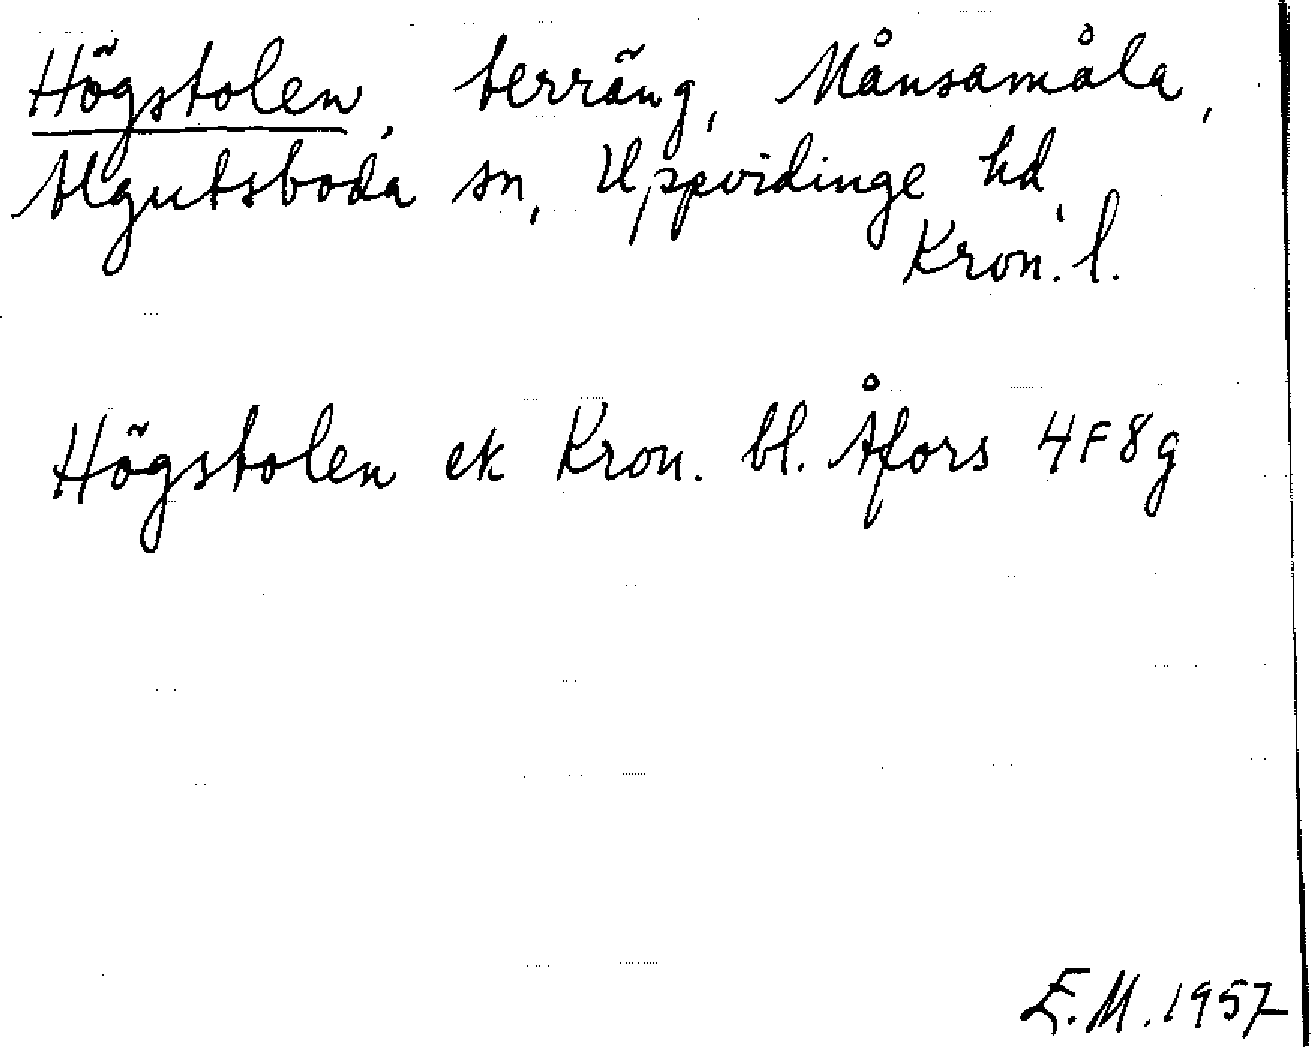 Högstolen, terräng, Månsamåla,
Algutsboda sn, Uppvidinge hd,
Kron. l.
Högstolen ek Kron. bl. Åfors 4F8g
E.M. 1957